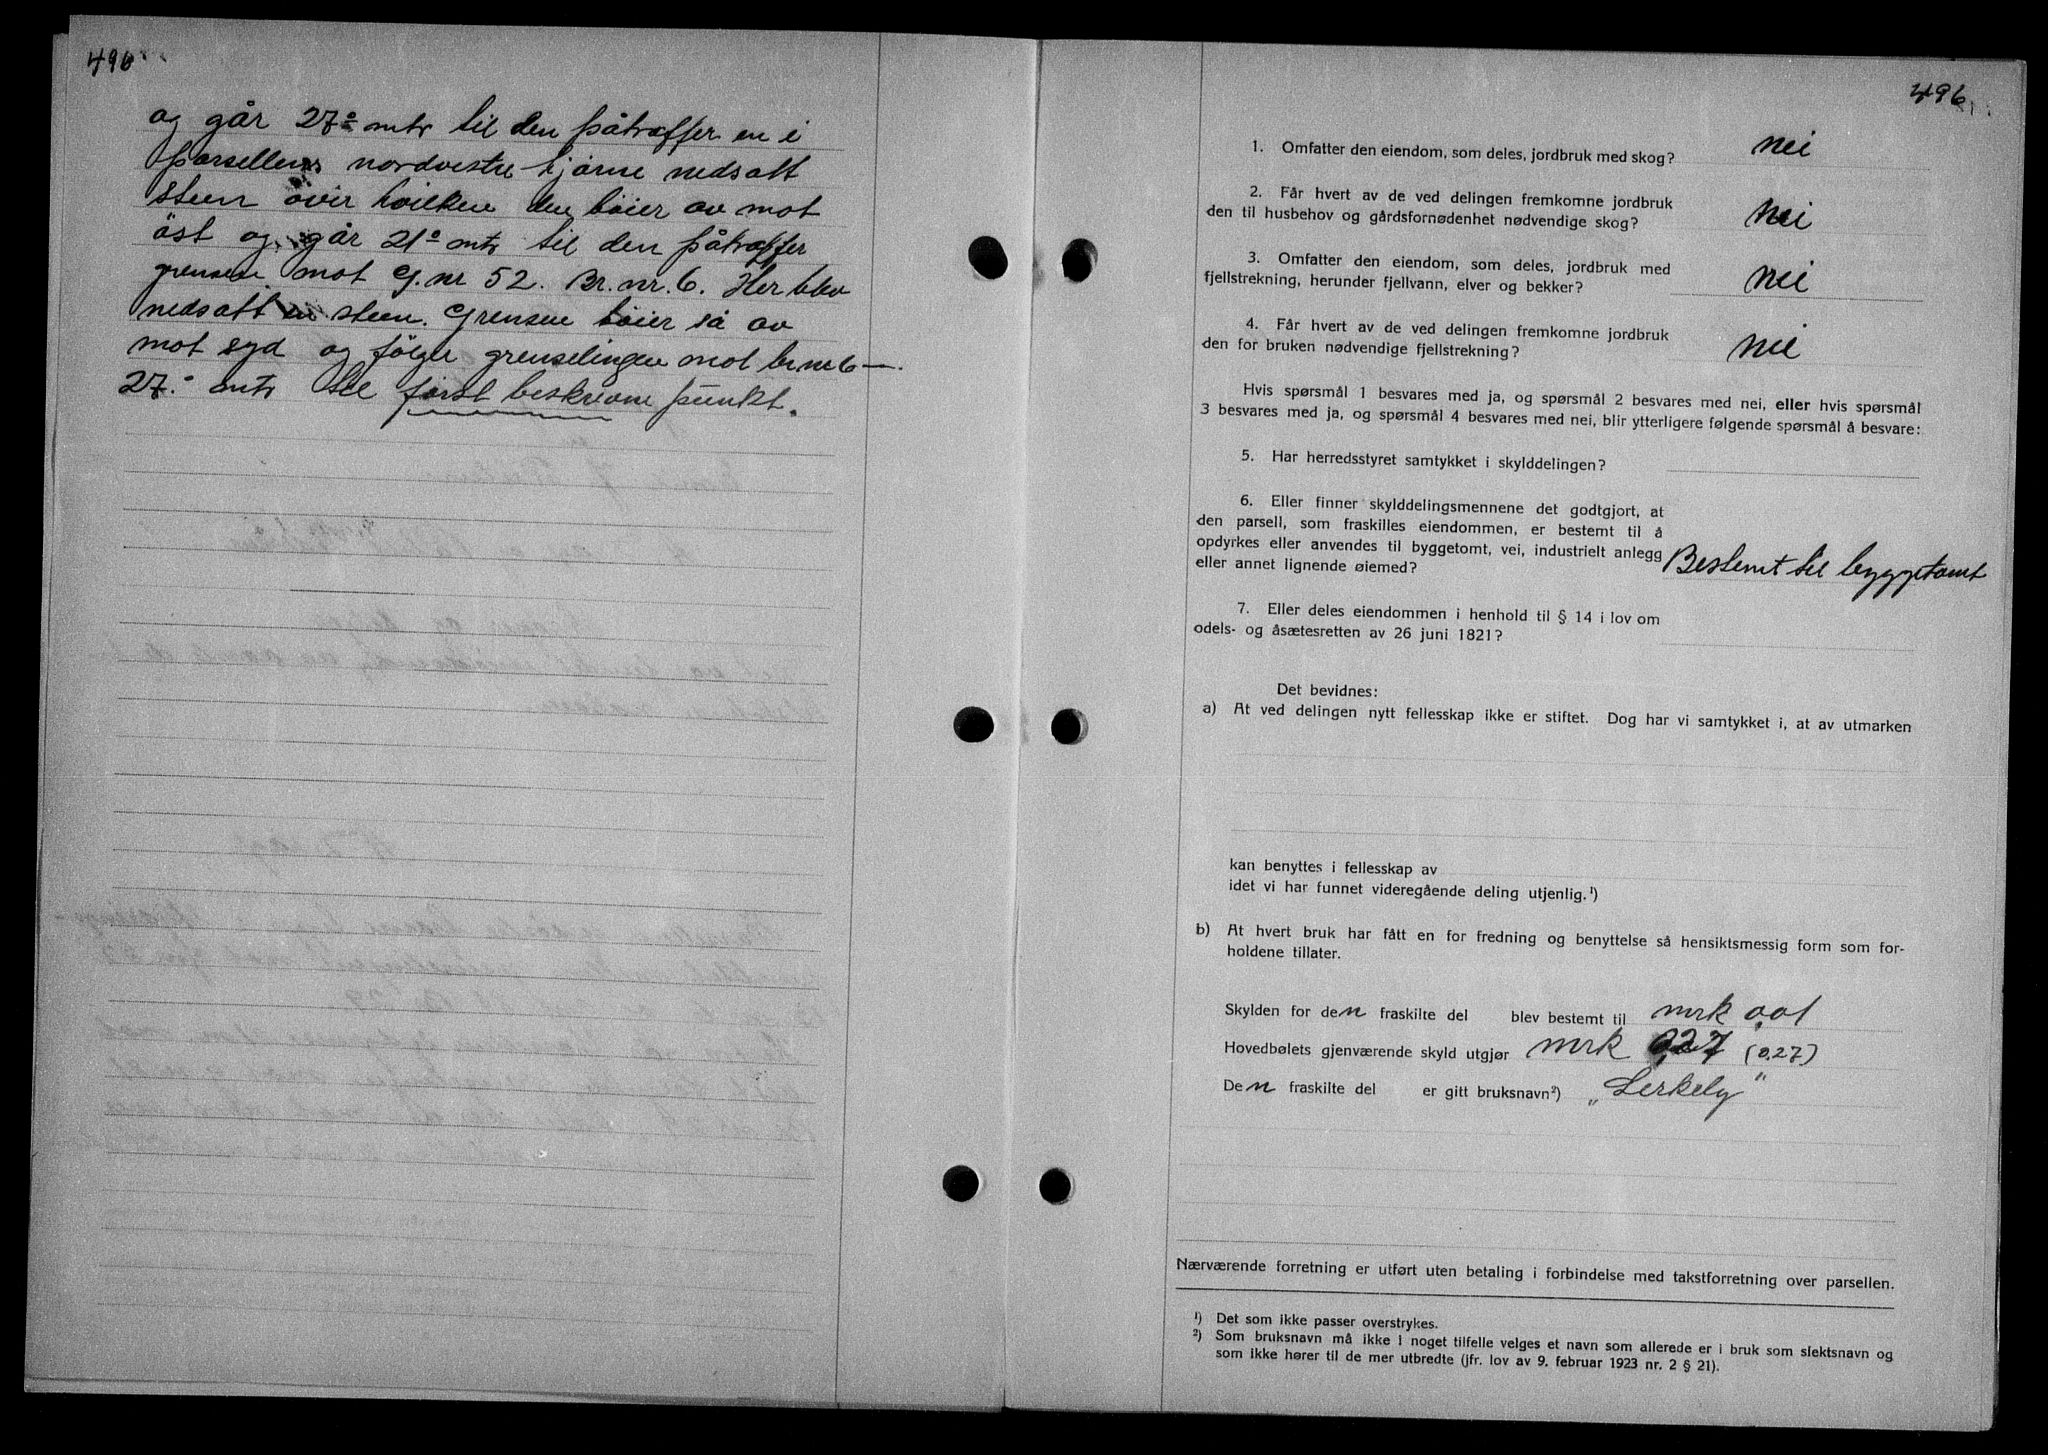 496
og går 27⁰ mtr til den påtræffer en i
parsellens nordvestre hjørne nedsatt
steen over hvilken den bøier av mot
öst og går 21⁰ mtr til den påtræffer
grensen mot G.nr 52. Br.nr. 6. Her blev
nedsatt en steen. Grensen bøier så av
mot syd og følger grenselingen mot br nr 6 —.
27.⁰ mtr til først beskrevne punkt.
496
1. Omfatter den eiendom, som deles, jordbruk med skog? nei
2. Får hvert av de ved delingen fremkomne jordbruk
den til husbehov og gårdsfornødenhet nødvendige skog? nei
3. Omfatter den eiendom, som deles, jordbruk med
fjellstrekning, herunder fjellvann, elver og bekker? nei
4. Får hvert av de ved delingen fremkomne jordbruk
den for bruken nødvendige fjellstrekning? nei
Hvis spørsmål 1 besvares med ja, og spørsmål 2 besvares med nei, eller hvis spørsmål
3 besvares med ja, og spørsmål 4 besvares med nei, blir ytterligere følgende spørsmål å besvare:
5. Har herredsstyret samtykket i skylddelingen?
6. Eller finner skylddelingsmennene det godtgjort, at
den parsell, som fraskilles eiendommen, er bestemt til å
opdyrkes eller anvendes til byggetomt, vei, industrielt anlegg
eller annet lignende øiemed? Bestemt til byggetomt
7. Eller deles eiendommen i henhold til § 14 i lov om
odels- og åsætesretten av 26 juni 1821?
Det bevidnes:
a) At ved delingen nytt fellesskap ikke er stiftet. Dog har vi samtykket i, at av utmarken
kan benyttes i fellesskap av
idet vi har funnet videregående deling utjenlig.¹)
b) At hvert bruk har fått en for fredning og benyttelse så hensiktsmessig form som for-
holdene tillater.
Skylden for den fraskilte del blev bestemt til mrk 0,01
Hovedbølets gjenværende skyld utgjør mrk 0,27 (0,27)
Den fraskilte del er gitt bruksnavn²) „Lerkely"
Nærværende forretning er utført uten betaling i forbindelse med takstforretning over parsellen.
¹) Det som ikke passer overstrykes.
²) Som bruksnavn må ikke i noget tilfelle velges et navn som allerede er i bruk som slektsnavn og
som ikke hører til de mer utbredte (jfr. lov av 9. februar 1923 nr. 2 § 21).